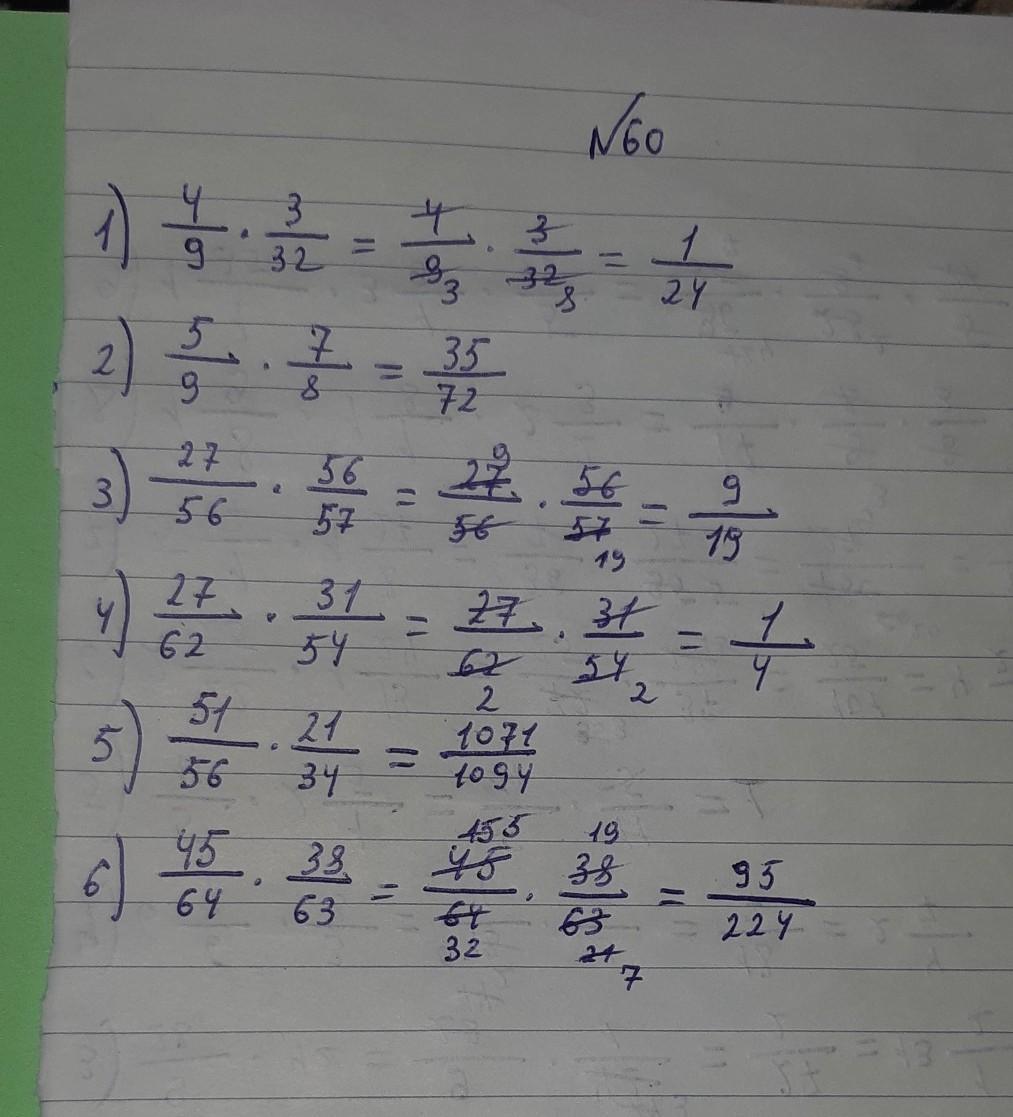 №60
1) 4/9 · 3/32 = 4/9 3 · 3/32 8 = 1/24
2) 5/9 · 7/8 = 35/72
3) 27/56 · 56/57 = 27 9/56 · 56/57 19 = 9/19
4) 27/62 · 31/54 = 27/62 2 · 31/54 2 = 1/4
5) 51/56 · 21/34 = 1071/1094
6) 45/64 · 38/63 = 45 15 5/64 32 · 38 19/63 21 7 = 95/224